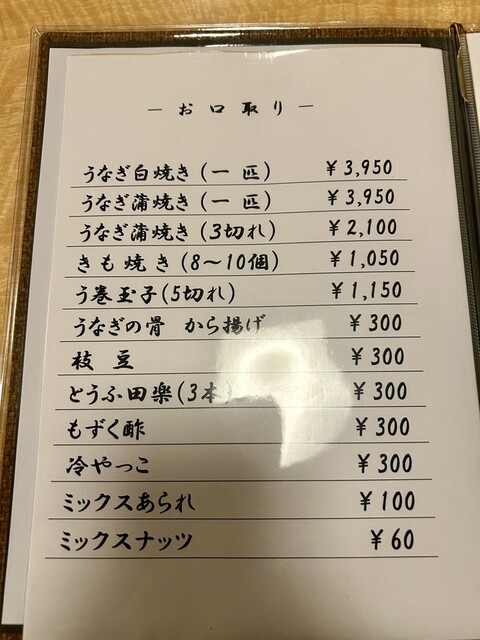 — お口取り —
うなぎ白焼き(一 匹) ¥3,950
うなぎ蒲焼き(一 匹) ¥3,950
うなぎ蒲焼き(3切れ) ¥2,100
きも焼き(8〜10個) ¥1,050
う巻玉子(5切れ) ¥1,150
うなぎの骨 から揚げ ¥300
枝 豆 ¥300
とうふ田楽(3本) ¥300
もずく酢 ¥300
冷やっこ ¥300
ミックスあられ ¥100
ミックスナッツ ¥60